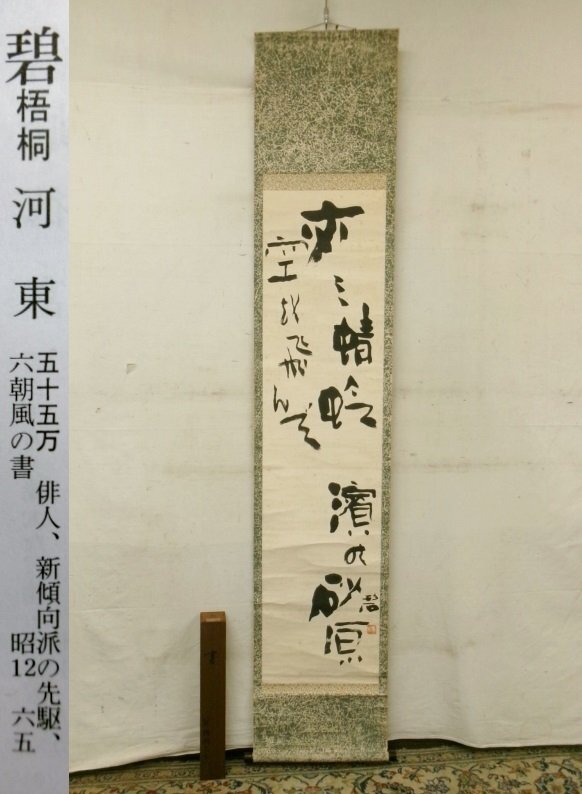 碧梧桐 河東
五十五万 俳人、新傾向派の先駆、
六朝風の書 昭12 六五
蜻蛉 濱の砂原
空を飛んで
碧